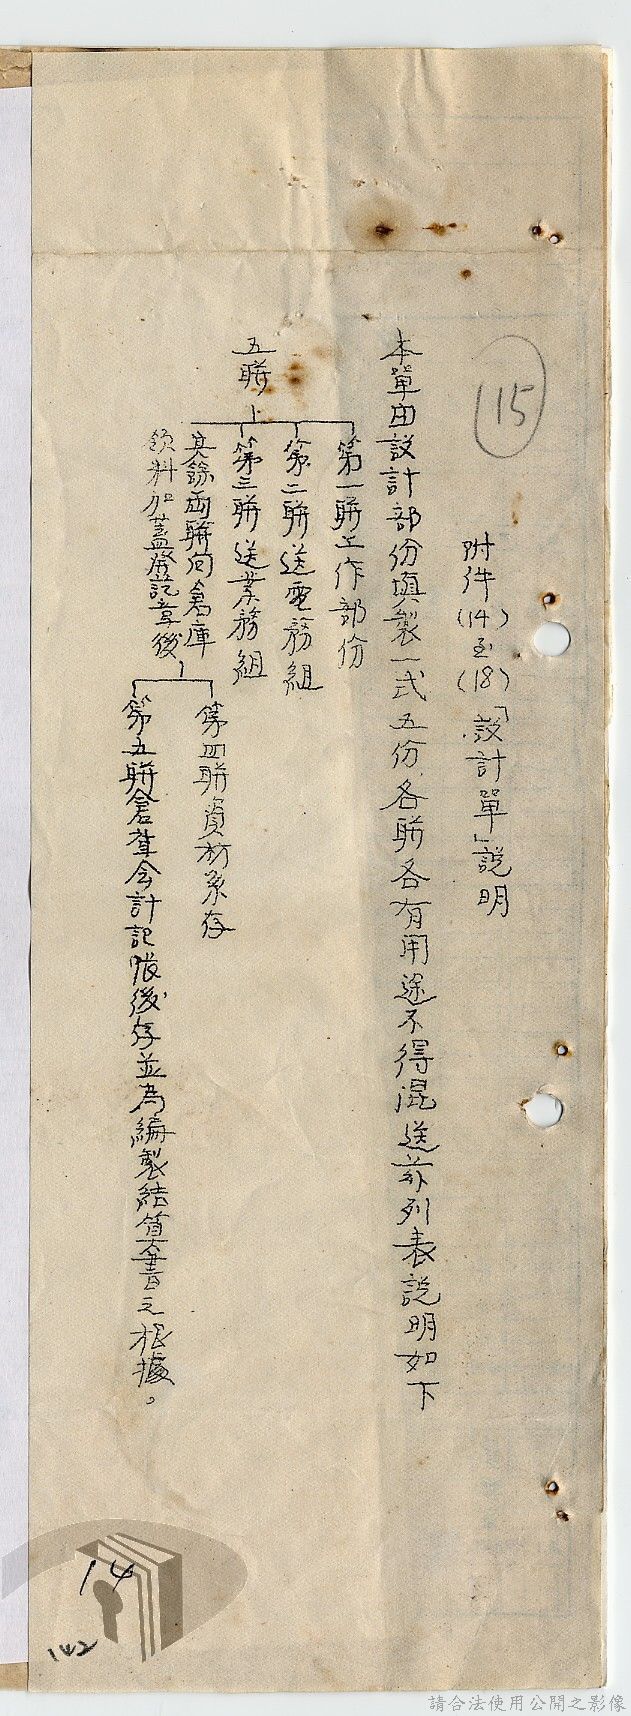 115
附件(14)至(18)「設計單」說明
本單由設計部份填製一式五份,各聯各有用途不得混送茲列表說明如下
五聯
第一聯工作部份
第二聯送電務組
第三聯送業務組
其餘兩聯向倉庫
領料加蓋發訖章後
第四聯資材系存
第五聯倉庫会計記帳後存並為編製結算書之根據。
14
142
請合法使用公開之影像